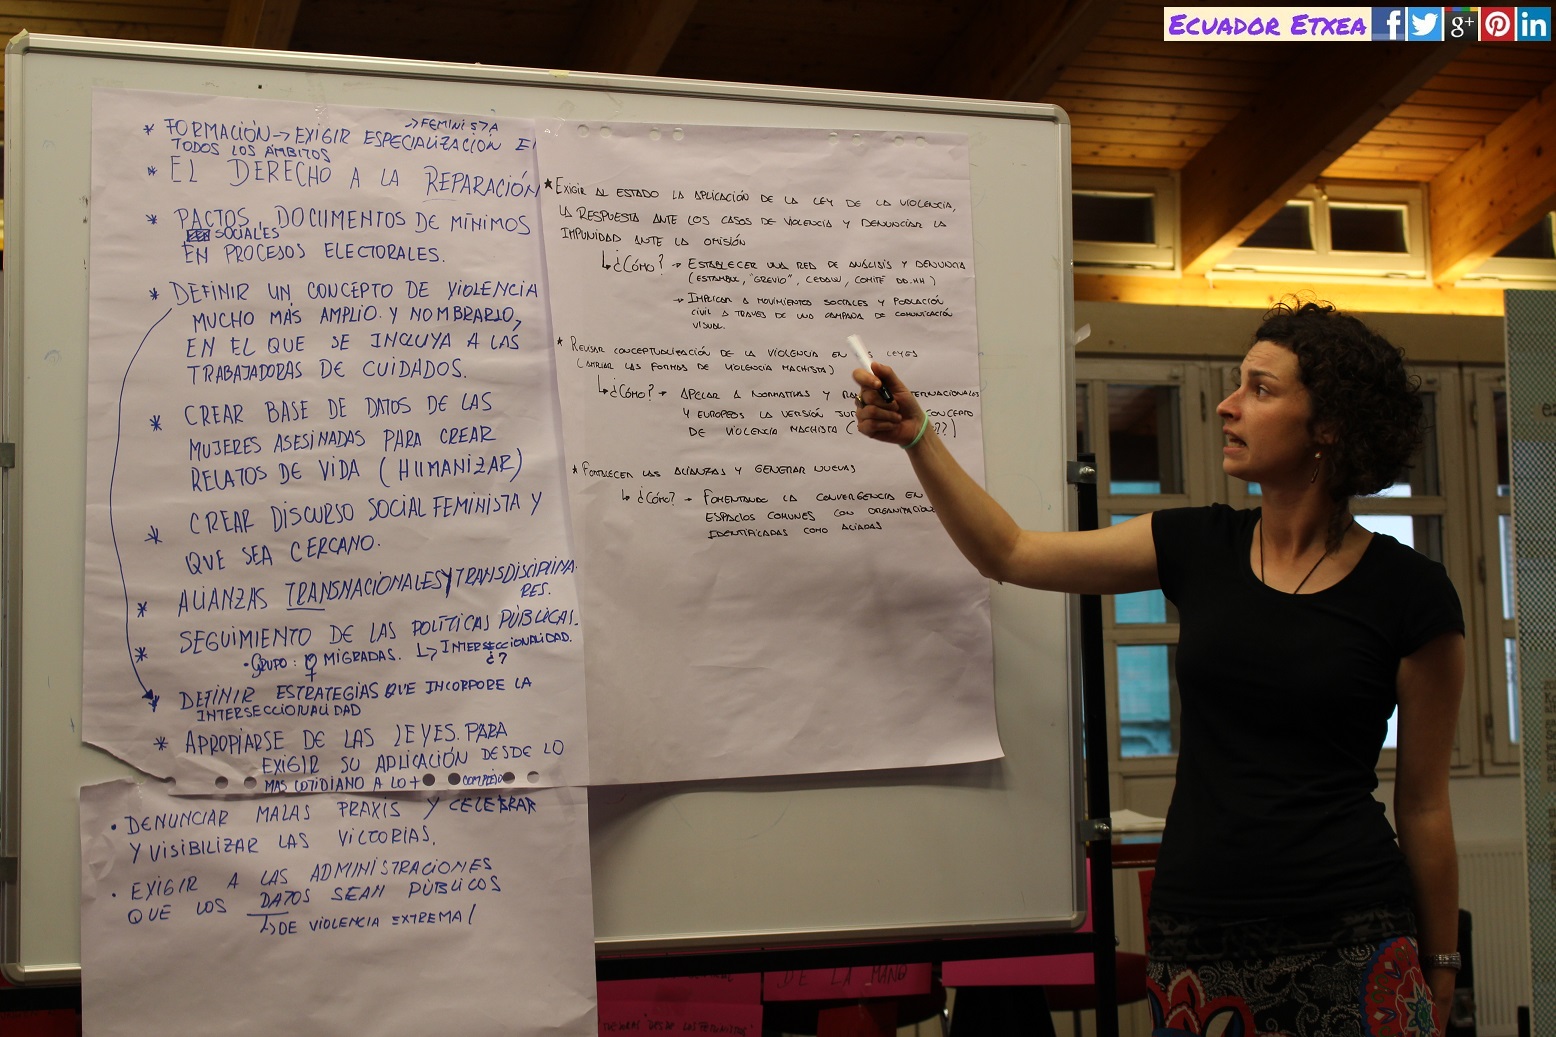 ECUADOR ETXEA
* FORMACIÓN → EXIGIR ESPECIALIZACIÓN
→ FEMINISTA
TODOS LOS ÁMBITOS
* EL DERECHO A LA REPARACIÓN
* PACTOS, DOCUMENTOS DE MÍNIMOS
SOCIALES
EN PROCESOS ELECTORALES.
* DEFINIR UN CONCEPTO DE VIOLENCIA
MUCHO MÁS AMPLIO. Y NOMBRARLO,
EN EL QUE SE INCLUYA A LAS
TRABAJADORAS DE CUIDADOS.
* CREAR BASE DE DATOS DE LAS
MUJERES ASESINADAS PARA CREAR
RELATOS DE VIDA (HUMANIZAR)
* CREAR DISCURSO SOCIAL FEMINISTA Y
QUE SEA CERCANO.
* ALIANZAS TRANSNACIONALES Y TRANSDISCIPLINA
RES.
* SEGUIMIENTO DE LAS POLÍTICAS PÚBLICAS.
• GRUPO: ♀ MIGRADAS. ↳ INTERSECCIONALIDAD.
¿?
* DEFINIR ESTRATEGIAS QUE INCORPORE LA
INTERSECCIONALIDAD
* APROPIARSE DE LAS LEYES. PARA
EXIGIR SU APLICACIÓN DESDE LO
MÁS COTIDIANO A LO +
• DENUNCIAR MALAS PRAXIS Y CELEBRAR
Y VISIBILIZAR LAS VICTORIAS.
• EXIGIR A LAS ADMINISTRACIONES
QUE LOS DATOS SEAN PÚBLICOS
↳ DE VIOLENCIA EXTREMA/
* EXIGIR AL ESTADO LA APLICACIÓN DE LA LEY DE LA VIOLENCIA,
LA RESPUESTA ANTE LOS CASOS DE VIOLENCIA Y DENUNCIAR LA
IMPUNIDAD ANTE LA OMISIÓN
↳ ¿CÓMO? → ESTABLECER UNA RED DE ANÁLISIS Y DENUNCIA
(ESTAMBUL, "GREVIO", CEDAW, COMITÉ DD.HH)
→ IMPLICAR A MOVIMIENTOS SOCIALES Y POBLACIÓN
CIVIL A TRAVÉS DE UNA CAMPAÑA DE COMUNICACIÓN
VISUAL.
* REVISAR CONCEPTUALIZACIÓN DE LA VIOLENCIA EN LEYES
(AMPLIAR LAS FORMAS DE VIOLENCIA MACHISTA)
↳ ¿CÓMO? → APELAR A NORMATIVAS Y
Y EUROPEOS LA VERSIÓN CONCEPTO
DE VIOLENCIA MACHISTA (
* FORTALECER LAS ALIANZAS Y GENERAR NUEVAS
↳ ¿CÓMO? → FOMENTANDO LA CONVERGENCIA EN
ESPACIOS COMUNES CON
IDENTIFICADAS COMO ALIADAS
DE LA MANO